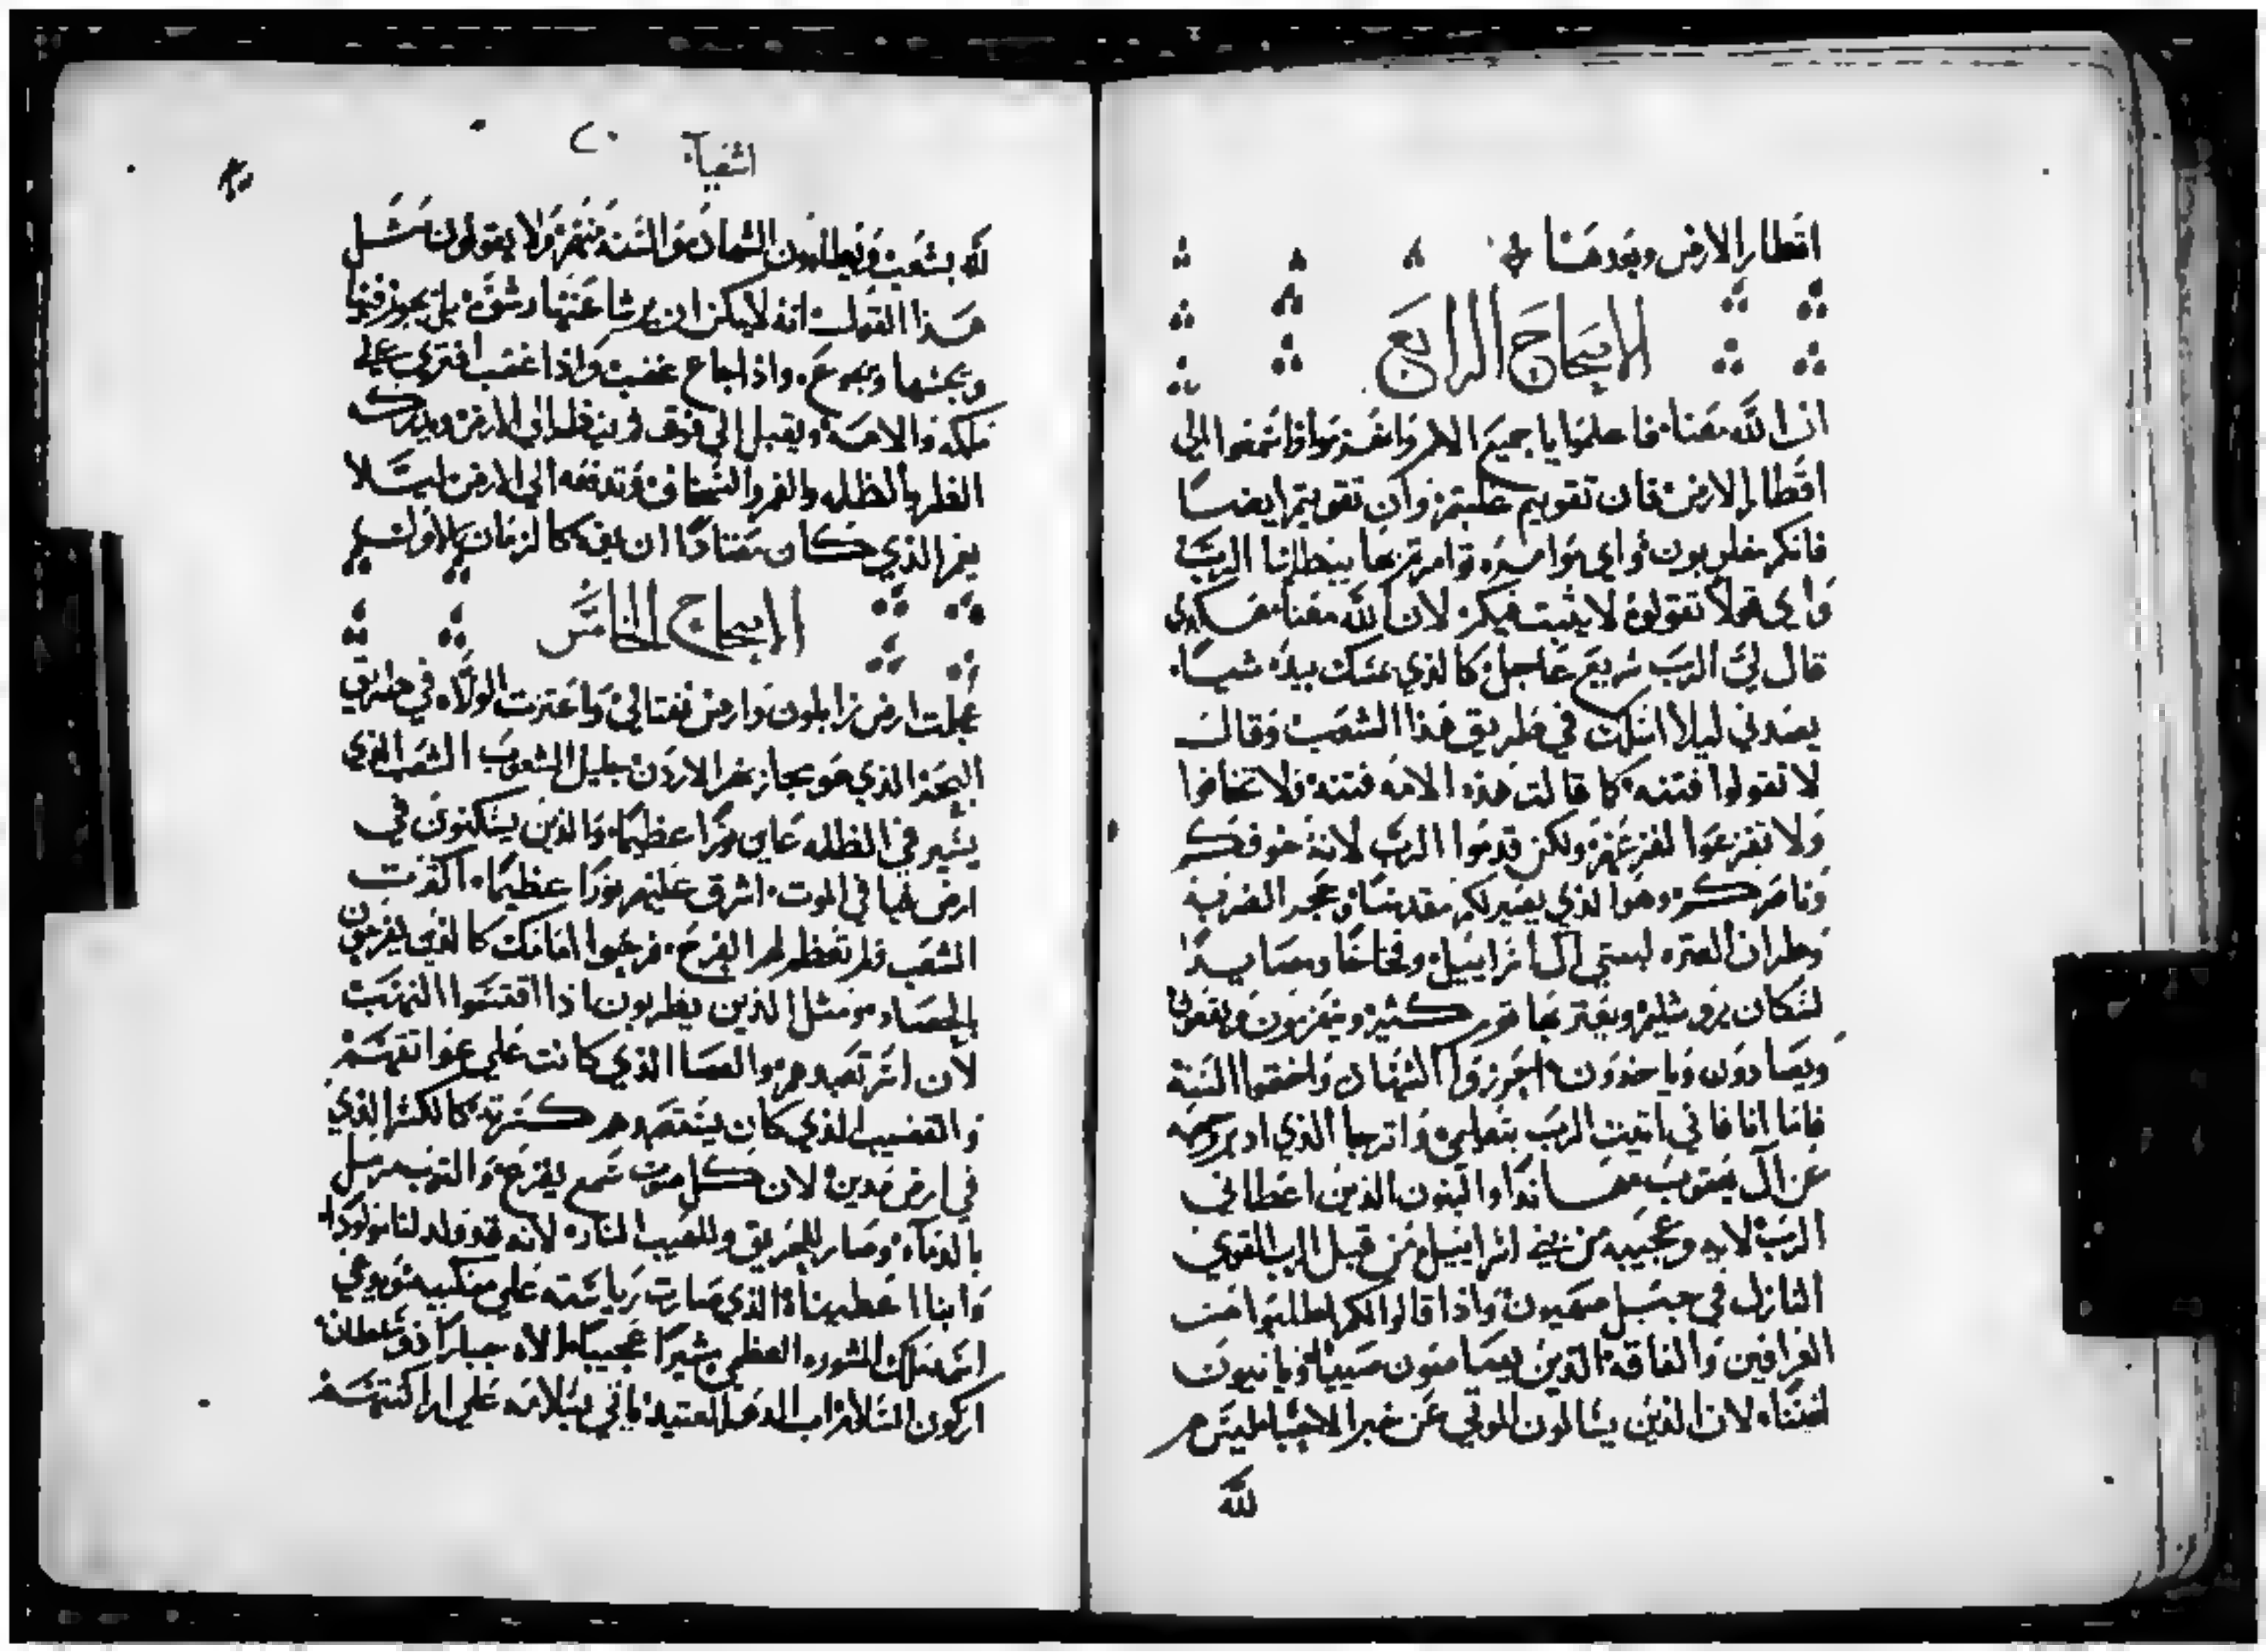 اقطار الارض وبعدهنا
الاصحاح الرابع
ان الله معنا فاعلموا يا جميع الامم واسمعوا الي
اقطار الارض فان تقويتم غلبتم وان تقويتم ايضا
فانكم مغلوبون واي موامره توامرتم بها يبطلها الرب
واي قولا تقولوه لا يثبت فيكم لان الله معنا هكدي
قال لي الرب سريع عاجل كالذي عسك بيده شيا
يصدني ليلا اسلك في طريق هذا الشعب وقال
لا تقولوا فتنه كما قالت هذه الامه فتنه ولا تخافوا
ولا تفزعوا لفزعهم ولكن قدموا الرب لانه خوفكم
وناصركم وهو الذي يصير لكم مقدسا وحجر الضربه
وطران العتره لبيتي ال اسراييل وفخاخا ومصايدا
لسكان يروشليم ويعتر بها قوم كثير ويتهزمون ويقعون
ويصادون وياخذون احرزوا الشهاده واختموا السنه
فاما انا فاني اتقيت الرب بتعليمي واترجا الذي ادبر وجهه
عن ال يعقوب هانذا والبنون الذين اعطاني
الرب لايه وعجيبه من بني اسراييل من قبل الرب القوي
النازل في جبل صهيون واذا قالوا لكم اطلبوا من
العرافين والفاقه الذين
لسننا لان الذين يسالون الموتي عن خبر الاحيا ليس هم
لله
اشعيا
٢٠
لله بشعب ويبطلون الشهاده والسنه منهم ولا يقولون مثل
هذا القول انه لا يمكن ان يرشا عنها رشوه بل يجوز فيها
ويحسها ويجوع واذا جاع غضب واذا غضب افتري علي
ملكه والامه ويقبل الي فوق وينظر الي الارض ويدرك
الغلم والظلمه والغم والسحاف وتدفعه الي الارض ليلا
يغم الذي كان معتادا ان يفك كالزمان الاول
الاصحاح الخامس
عجلت ارض زابلون وارض نفتالي واعتزت الولاه في طريق
البحر الذي هو مجاز نهر الاردن جليل الشعوب الشعب الذي
يسير في الظلمه عاين نورا عظيما والذين يسكنون في
ارض في الموت اشرق عليهم نورا عظيما اكثرت
الشعب فلم تعظم لهم الفرح فرحوا امامك كالذين يفرحون
بالحصاد ومثل الذين يطربون اذا اقتسموا النهب
لان تعبدهم والعصا الذي كانت علي عواتقهم
والقضيب الذي كان يستعبدهم كسرته كالكسر الذي
في ارض مدين لان كل صوت سمع يفزع والتوب مرمل
بالدماء وصار للحريق وللهيب النار لانه قد ولد لنا مولودا
وابنا اعطيناه الذي صارت رياسته علي منكبيه ويدعي
اسمه ملك المشوره العظمي مشيرا عجيبا الاه جبارا ذو سلطان
اركون السلام اب الدهر العتيد ياتي بسلامه علي اراكنتهم